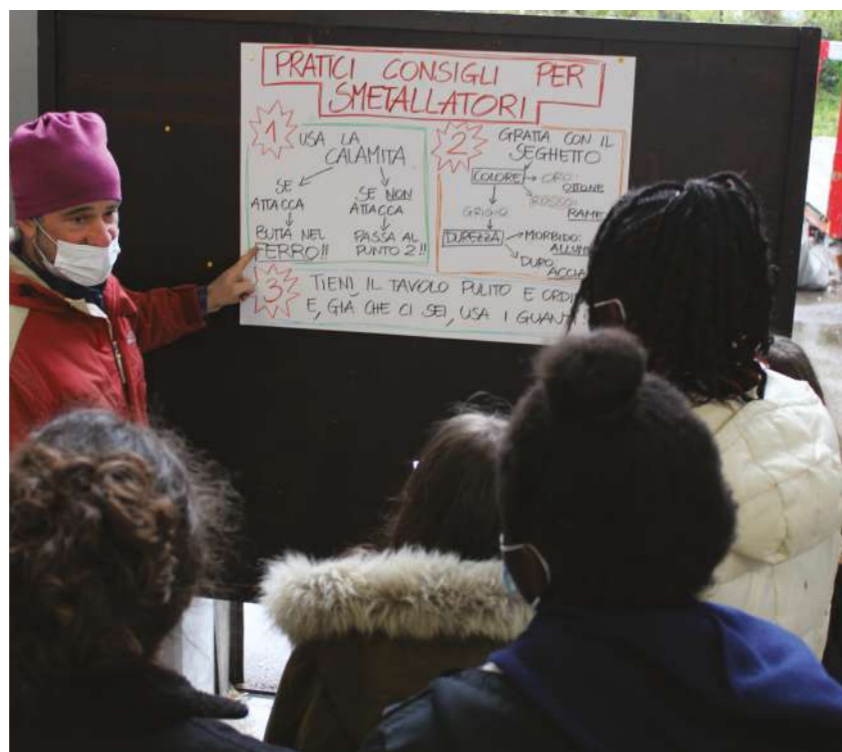 PRATICI CONSIGLI PER
SMETALLATORI
1
USA LA
CALAMITA
SE
ATTACCA
BUTTA NEL
FERRO!!
SE NON
ATTACCA
PASSA AL
PUNTO 2!!
2
GRATTA CON IL
SEGHETTO
COLORE
ORO:
OTTONE
ROSSO:
RAME
GRIGIO
DUREZZA
MORBIDO:
DURO
3
TIENI IL TAVOLO PULITO E
E, GIÀ CHE CI SEI, USA I